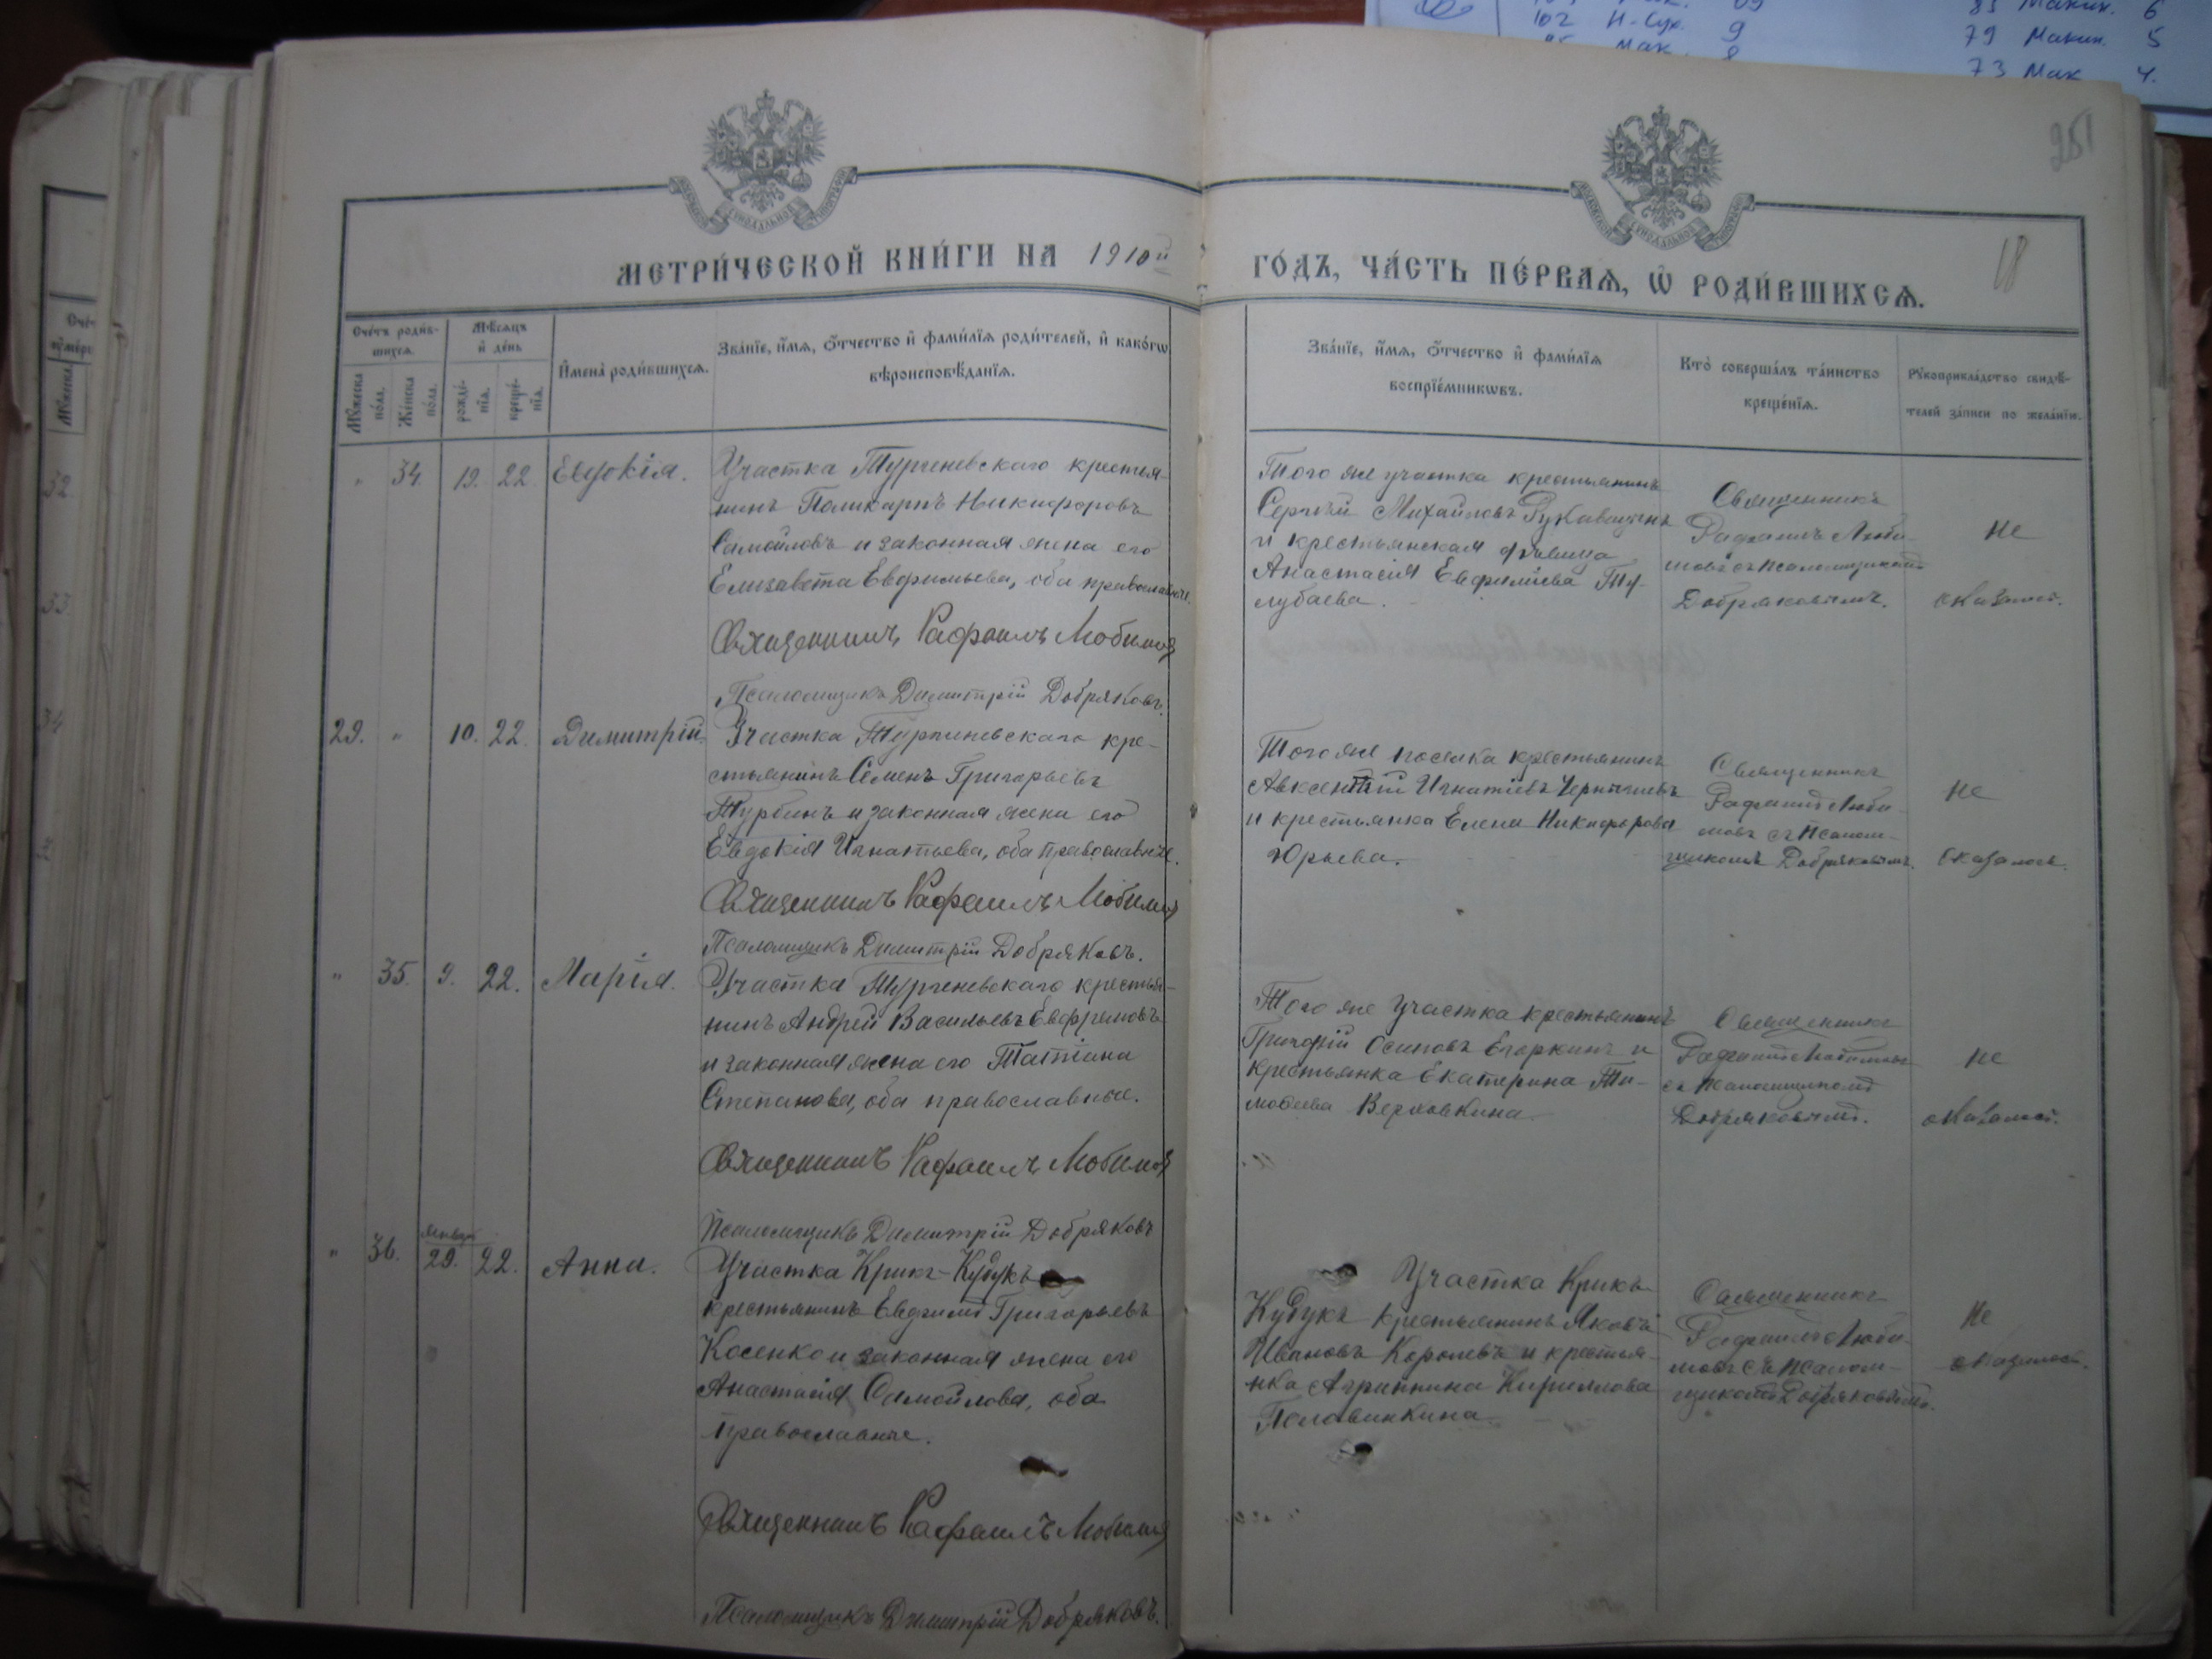 102 Н-Сух. 9
79 Макин. 5
73 Мак 4.
251
МЕТРИ́ЧЕСКОЙ КНИ́ГИ НА 1910й ГО́ДЪ, ЧА́СТЬ ПЕ́РВАѦ, Ѡ҆ РОДИ́ВШИХСѦ.
18
Сче́тъ роди́в-
шихсѧ.
Мѣ́сѧцъ
и҆ де́нь
И҆мена̀ роди́вшихсѧ.
Зва́нїе, и҆́мѧ, ѻ҆́тчество и҆ фами́лїѧ роди́телей, и҆ како́гѡ
вѣроисповѣ́данїѧ.
Мꙋ́жеска
по́ла.
Же́нска
по́ла.
рожде́-
нїѧ.
креще́-
нїѧ.
Зва́нїе, и҆́мѧ, ѻ҆́тчество и҆ фами́лїѧ
воспрїе́мникѡвъ.
Кто̀ соверша́лъ та́инство
креще́нїѧ.
Рꙋкоприкла́дство свидѣ́-
телей за́писи по жела́нїю.
" 34. 19. 22. Евдокія.
Участка Тургеневскаго крестья-
нинъ Поликарпъ Никифоровъ
Самойловъ и законная жена его
Елизавета Евфимьева, оба православные.
Священникъ Рафаилъ Любимов
Псаломщикъ Димитрій Добряковъ.
Того же участка крестьянинъ
Сергѣй Михайловъ Рукавицынъ
и крестьянская дѣвица
Анастасія Евфиміева Ту-
лубаева.
Священникъ
Рафаилъ Люби-
мовъ съ псаломщикомъ
Добряковымъ.
Не
оказалось.
29. " 10. 22. Димитрій.
Участка Тургеневскаго кре-
стьянинъ Семенъ Григорьевъ
Турбинъ и законная жена его
Евдокія Игнатьева, оба православные.
Священникъ Рафаилъ Любимов
Псаломщикъ Димитрій Добряковъ.
Того же поселка крестьянинъ
Авксентій Игнатіевъ Чернышевъ
и крестьянка Елена Никифорова
Юрьева.
Священникъ
Рафаилъ Люби-
мовъ съ псалом-
щикомъ Добряковымъ.
Не
оказалось.
" 35. 9. 22. Марія.
Участка Тургеневскаго крестья-
нинъ Андрей Васильевъ Евфремовъ
и законная жена его Татіана
Степанова, оба православные.
Священникъ Рафаилъ Любимов
Псаломщикъ Димитрій Добряковъ
Того же участка крестьянинъ
Григорій Осиповъ Егоркинъ и
крестьянка Екатерина Ти-
мофеева Верховкина.
Священникъ
Рафаилъ Любимовъ
съ псаломщикомъ
Добряковымъ.
Не
оказалось.
" 36. января 29. 22. Анна.
Участка Крикъ-Кудукъ
крестьянинъ Евфимій Григорьевъ
Косенко и законная жена его
Анастасія Самойлова, оба
православные.
Священникъ Рафаилъ Любимов
Псаломщикъ Димитрій Добряковъ.
Участка Крикъ-
Кудукъ крестьянинъ Яковъ
Ивановъ Королевъ и крестья-
нка Агриппина Кириллова
Половинкина.
Священникъ
Рафаилъ Люби-
мовъ съ псалом-
щикомъ Добряковымъ.
Не
оказалось.